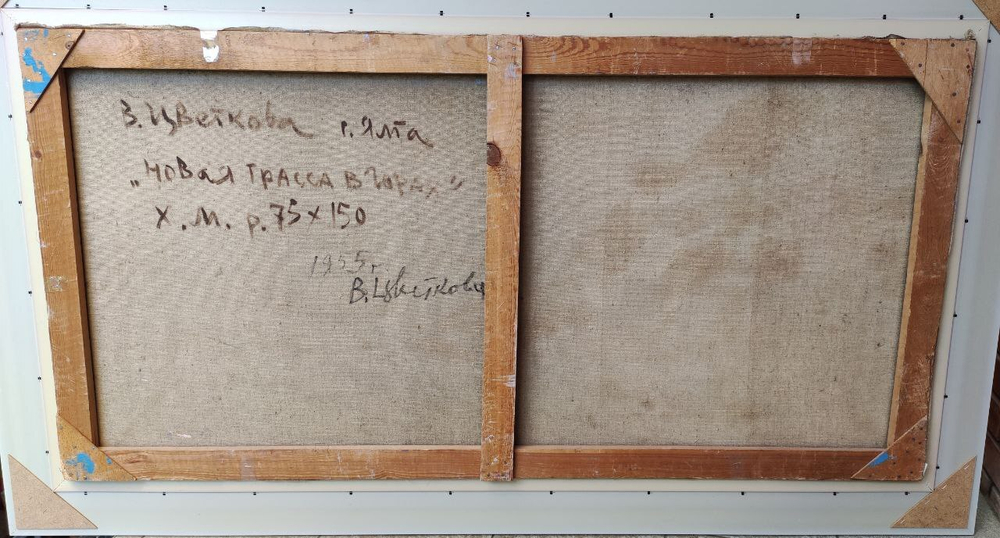 В. Цветкова г. Ялта
„Новая трасса в горах"
Х. М. р. 75 х 150
1955 г.
В. Цветкова